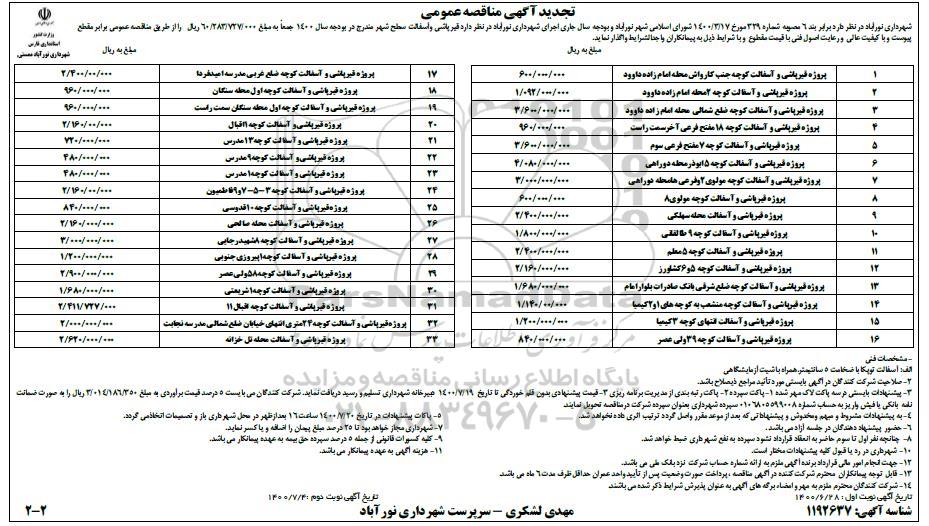 تجدید آگهی مناقصه عمومی
وزارت کشور
استانداری فارس
شهرداری نورآباد ممسنی
شهرداری نورآباد در نظر دارد برابر بند ۶ مصوبه شماره ۳۲۹ مورخ ۱۴۰۰/۳/۱۷ شورای اسلامی شهر نورآباد و بودجه سال جاری اجرای شهرداری نورآباد در نظر دارد قیرپاشی و آسفالت سطح شهر مندرج در بودجه سال ۱۴۰۰ جمعاً به مبلغ ۶۰/۲۸۳/۷۲۷/۰۰۰ ریال را از طریق مناقصه عمومی برابر مقطع
پیوست و با کیفیت عالی و رعایت اصول فنی با قیمت مقطوع و با شرایط ذیل به پیمانکاران واجد الشرایط واگذار نماید.
مبلغ به ریال
مبلغ به ریال
۱ پروژه قیرپاشی و آسفالت کوچه جنب کارواش محله امام زاده داوود ۶۰۰/۰۰۰/۰۰۰
۲ پروژه قیرپاشی و آسفالت کوچه ۲ محله امام زاده داوود ۱/۰۹۲/۰۰۰/۰۰۰
۳ پروژه قیرپاشی و آسفالت کوچه ضلع شمالی محله امام زاده داوود ۳/۶۰۰/۰۰۰/۰۰۰
۴ پروژه قیرپاشی و آسفالت کوچه ۱۸ مفتح فرعی آخر سمت راست ۹۶۰/۰۰۰/۰۰۰
۵ پروژه قیرپاشی و آسفالت کوچه ۷ مفتح فرعی سوم ۳/۶۰۰/۰۰۰/۰۰۰
۶ پروژه قیرپاشی و آسفالت کوچه ۱۵ بوذر محله دوراهی ۴/۰۸۰/۰۰۰/۰۰۰
۷ پروژه قیرپاشی و آسفالت کوچه مولوی ۲ و فرعی ها محله دوراهی ۳/۰۰۰/۰۰۰/۰۰۰
۸ پروژه قیرپاشی و آسفالت کوچه مولوی ۸ ۶۰۰/۰۰۰/۰۰۰
۹ پروژه قیرپاشی و آسفالت محله سهلکی ۲/۴۰۰/۰۰۰/۰۰۰
۱۰ پروژه قیرپاشی و آسفالت کوچه ۹ طالقانی ۱/۸۰۰/۰۰۰/۰۰۰
۱۱ پروژه قیرپاشی و آسفالت کوچه ۵ معلم ۲/۴۰۰/۰۰۰/۰۰۰
۱۲ پروژه قیرپاشی و آسفالت کوچه ۵و۶ کشاورز ۲/۱۶۰/۰۰۰/۰۰۰
۱۳ پروژه قیرپاشی و آسفالت کوچه ضلع شرقی بانک صادرات بلوار امام ۱/۶۸۰/۰۰۰/۰۰۰
۱۴ پروژه قیرپاشی و آسفالت کوچه منشعب به کوچه های ۱و۲ کیمیا ۱/۱۴۰/۰۰/۰۰۰
۱۵ پروژه قیرپاشی و آسفالت انتهای کوچه ۳ کیمیا ۱/۲۰۰/۰۰۰/۰۰۰
۱۶ پروژه قیرپاشی و آسفالت کوچه ۳۹ ولی عصر ۸۴۰/۰۰۰/۰۰۰
۱۷ پروژه قیرپاشی و آسفالت کوچه ضلع غربی مدرسه امید فردا ۲/۴۰۰/۰۰/۰۰۰
۱۸ پروژه قیرپاشی و آسفالت کوچه اول محله سنگان ۹۶۰/۰۰۰/۰۰۰
۱۹ پروژه قیرپاشی و آسفالت کوچه اول محله سنگان سمت راست ۹۶۰/۰۰۰/۰۰۰
۲۰ پروژه قیرپاشی و آسفالت کوچه ۱۱ اقبال ۲/۱۶۰/۰۰/۰۰۰
۲۱ پروژه قیرپاشی و آسفالت کوچه ۱۳ مدرس ۷۲۰/۰۰۰/۰۰۰
۲۲ پروژه قیرپاشی و آسفالت کوچه ۹ مدرس ۴۸۰/۰۰۰/۰۰۰
۲۳ پروژه قیرپاشی و آسفالت کوچه ۱ مدرس ۴۸۰/۰۰۰/۰۰۰
۲۴ پروژه قیرپاشی و آسفالت کوچه ۳-۵-۷و۹ فاطمیون ۲/۱۶۰/۰۰/۰۰۰
۲۵ پروژه قیرپاشی و آسفالت کوچه ۱۰ قدوسی ۸۴۰/۰۰۰/۰۰۰
۲۶ پروژه قیرپاشی و آسفالت محله صالحی ۲/۱۶۰/۰۰۰/۰۰۰
۲۷ پروژه قیرپاشی و آسفالت کوچه ۸ شهید رجایی ۳/۰۰۰/۰۰۰/۰۰۰
۲۸ پروژه قیرپاشی و آسفالت کوچه ۱ پیروزی جنوبی ۱/۲۰۰/۰۰۰/۰۰۰
۲۹ پروژه قیرپاشی و آسفالت کوچه ۵۸ ولی عصر ۲/۹۰۰/۰۰۰/۰۰۰
۳۰ پروژه قیرپاشی و آسفالت کوچه ۱ شریعتی ۱/۶۸۰/۰۰۰/۰۰۰
۳۱ پروژه قیرپاشی و آسفالت کوچه اقبال ۱۱ ۲/۴۱۱/۷۲۷/۰۰۰
۳۲ پروژه قیرپاشی و آسفالت کوچه ۲۴ متری انتهای خیابان ضلع شمالی مدرسه نجابت ۲/۰۰۰/۰۰۰/۰۰۰
۳۳ پروژه قیرپاشی و آسفالت محله تل خزانه ۲/۶۲۰/۰۰۰/۰۰۰
-مشخصات فنی
الف: آسفالت توپکا با ضخامت ۵ سانتیمتر همراه با شیت آزمایشگاهی
۲- صلاحیت شرکت کنندگان در آگهی بایستی مورد تأئید مراجع ذیصلاح باشد.
۳- پیشنهادات بایستی در سه پاکت لاک مهر شده ۱- پاکت سپرده ۲- پاکت رتبه بندی از مدیریت برنامه ریزی ۳- قیمت پیشنهادی بدون قلم خوردگی تا تاریخ ۱۴۰۰/۷/۱۹ دبیرخانه شهرداری تسلیم و رسید دریافت نماید. شرکت کنندگان می بایست ۵ درصد قیمت برآوردی به مبلغ ۳/۰۱۴/۱۸۶/۳۵۰ ریال را به صورت ضمانت
نامه بانکی یا فیش واریز به حساب شماره ۰۱۰۶۸۰۵۹۹۰۰۸ سپرده شهرداری بعنوان سپرده شرکت در مناقصه تحویل نمایند.
۴- به پیشنهادات مشروط و مبهم و مخدوش و پیشنهاداتی که بعد از موعد مقرر واصل گردد ترتیب اثری داده نخواهد شد.
۵- پاکات پیشنهادات در تاریخ ۱۴۰۰/۷/۲۰ ساعت ۱۶ بعدازظهر در محل شهرداری باز و تصمیمات اتخاذمی گردد.
۶- حضور پیشنهاد دهندگان در جلسه آزاد می باشد.
۷- شهرداری مجاز خواهد بود تا ۲۵ درصد مبلغ پیمان را اضافه و یا کسر نماید.
۸- چنانچه نفر اول تا سوم حاضر به انعقاد قرارداد نشود سپرده به نفع شهرداری ضبط خواهد شد.
۹- کلیه کسورات قانونی از جمله ۵ درصد سپرده حق بیمه به عهده پیمانکار می باشد.
۱۰- شهرداری در رد یا قبول کلیه پیشنهادات مختار است.
۱۱- هزینه آگهی به عهده پیمانکار می باشد.
۱۲- جهت انجام امور مالی قرارداد برنده آگهی ملزم به ارائه شماره حساب شرکت نزد بانک ملی می باشد.
۱۳- قابل توجه پیمانکاران محترم شرکت کننده در آگهی مناقصه، پرداخت صورت وضعیت پس از تأیید واحد عمران حداقل ظرف مدت ۶ ماه می باشد.
۱۴- شرکت کنندگان محترم ملزم به مهر و امضاء برگه های آگهی به عنوان پذیرش شرایط ذکر شده می باشند
تاریخ آگهی نوبت اول : ۱۴۰۰/۶/۲۸
تاریخ آگهی نوبت دوم : ۱۴۰۰/۷/۴
شناسه آگهی: ۱۱۹۲۶۳۷
مهدی لشکری - سرپرست شهرداری نورآباد
۲-۲
ParsNamadData
پایگاه اطلاع رسانی مناقصه و مزایده
۰۲۱-۸۸۳۴۹۶۷۰-۵